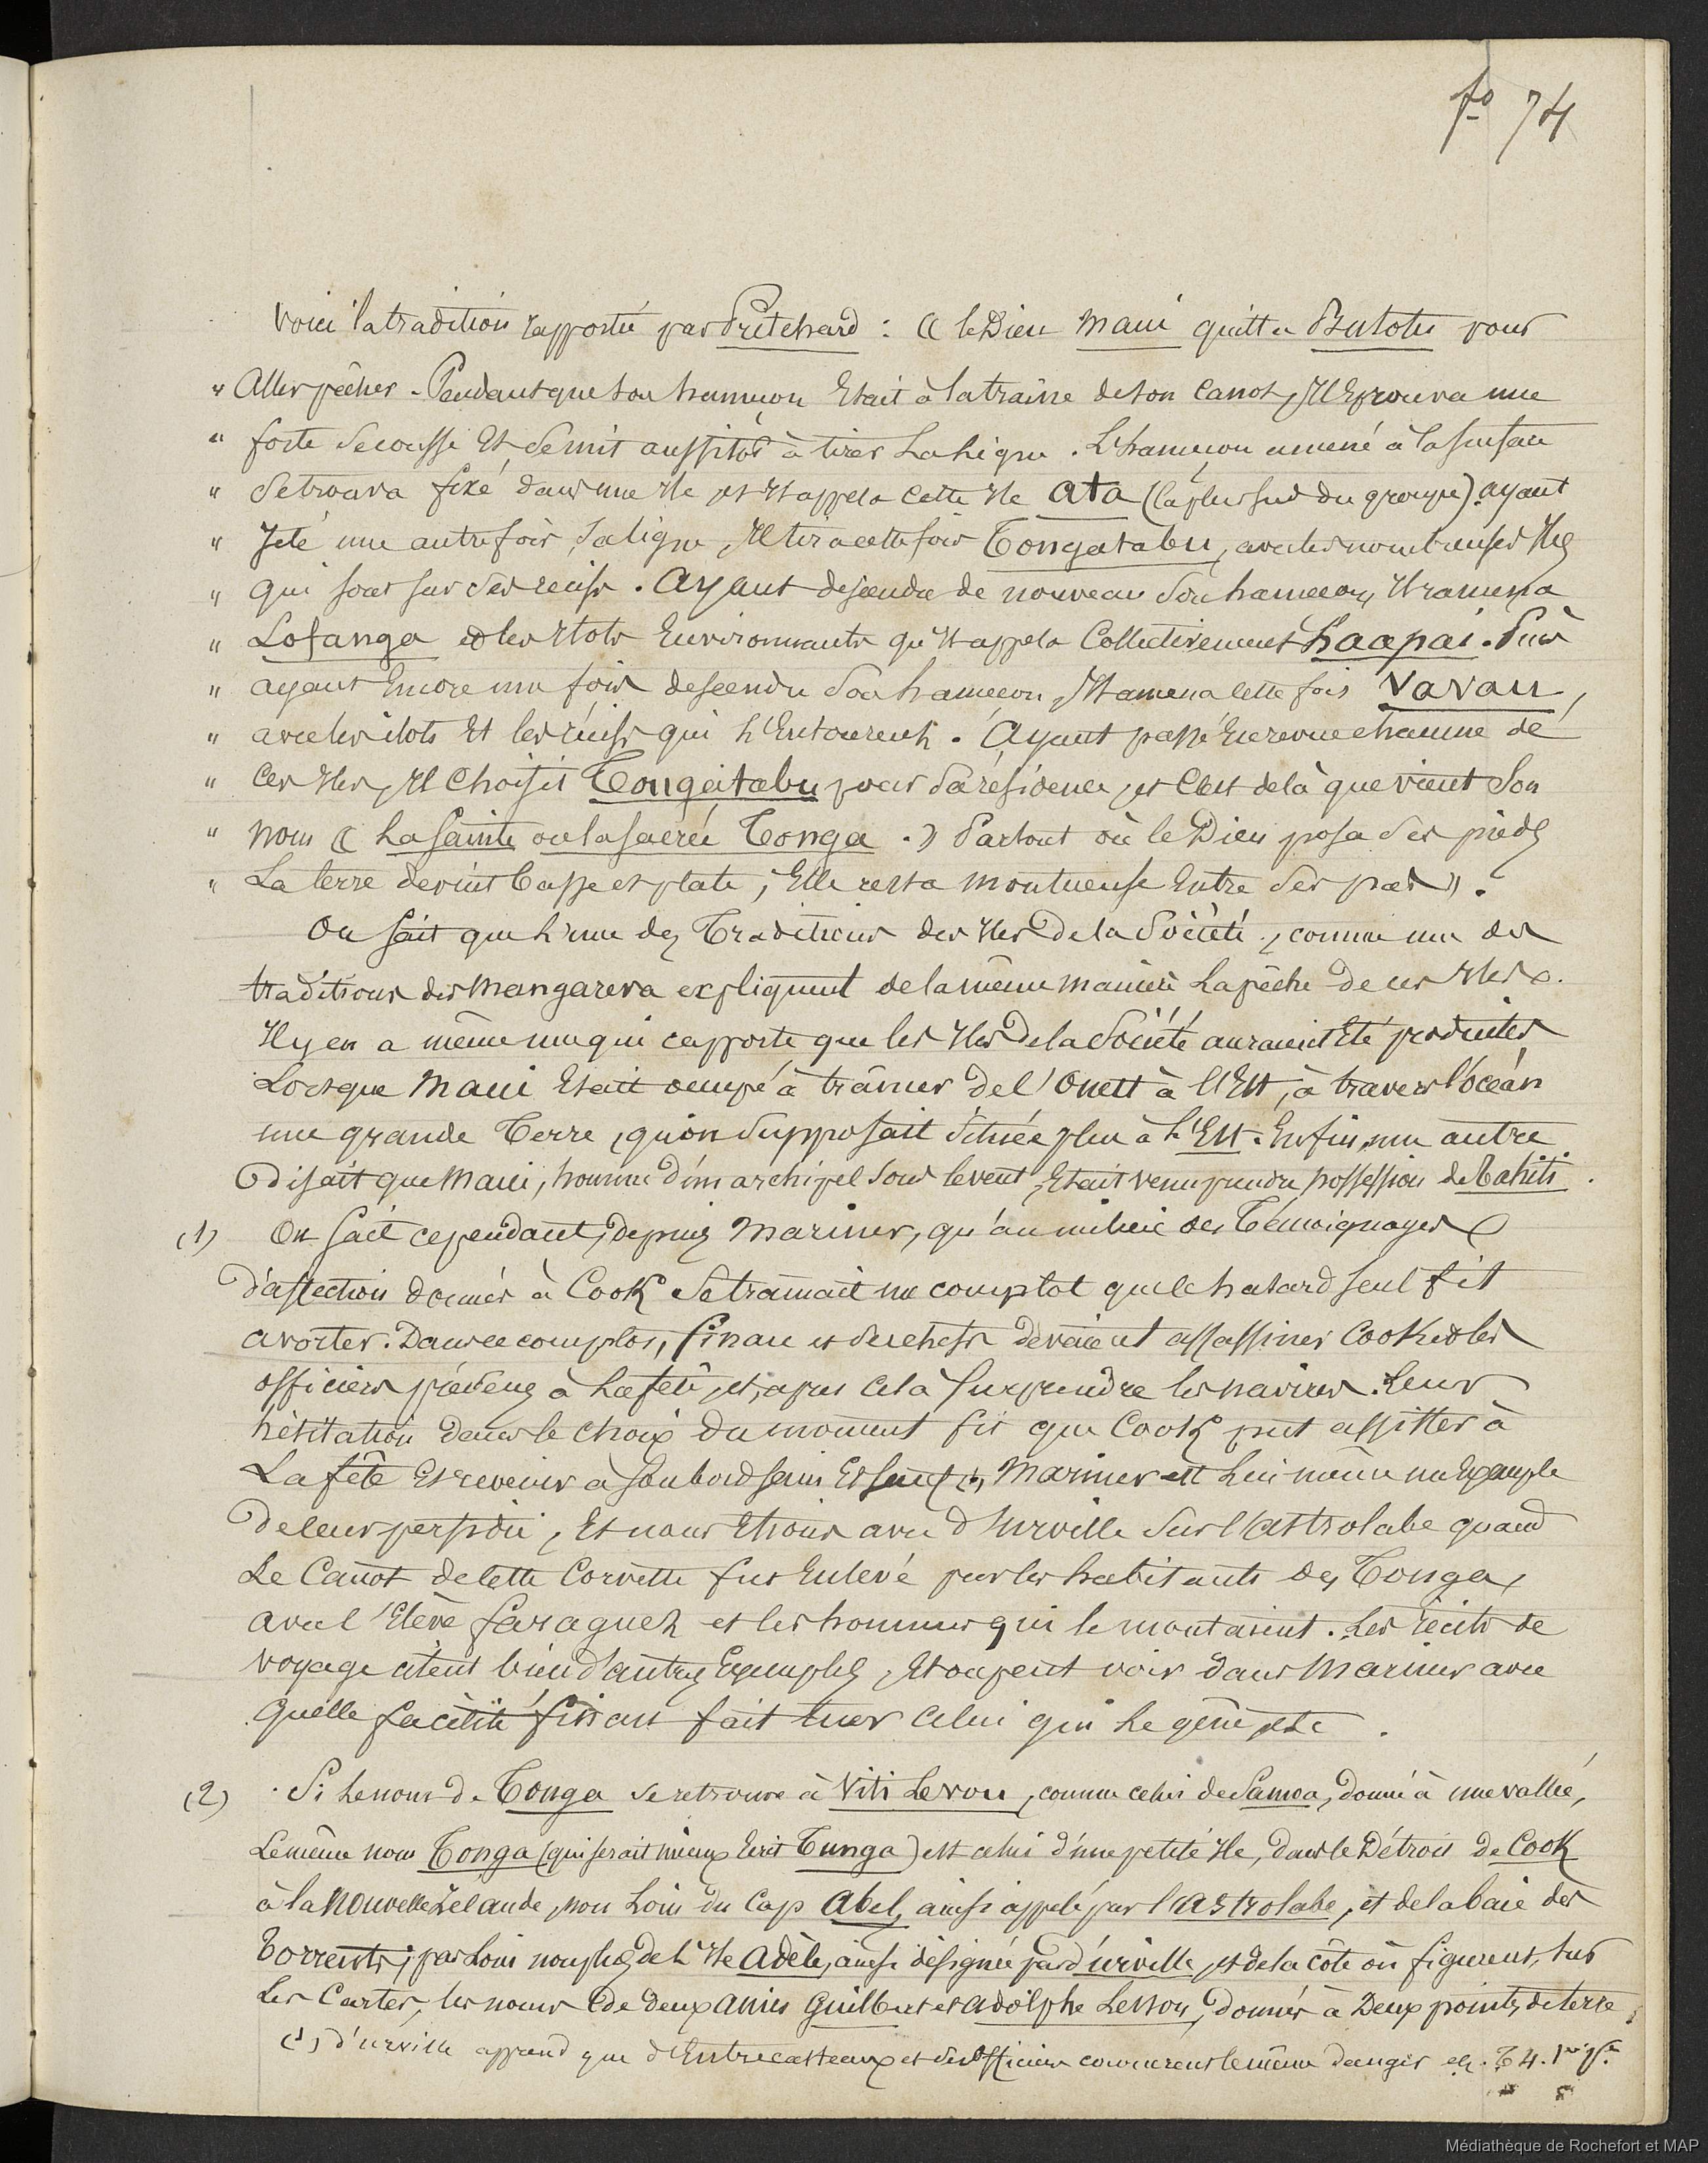 fo 74
Voici la tradition rapportée par Pritchard : « le Dieu Maui quitta Bulotu pour
" Aller pêcher. Pendant que son hameçon Etait à la traine de son Canot, Il Eprouva une
" forte secousse Et se mit aussitôt à tirer La ligne. L'hameçon amené à la surface
" se trouva fixé dans une Ile et Il appela cette Ile Ata (la plus sud du groupe). ayant
" Jeté une autre fois sa ligne, Il tira cette fois Tongatabu, avec les nombreuses Iles
" qui sont sur ses récifs. Ayant descendu de nouveau son hameçon, Il ramena
" Lofanga et les Ilots Environnants qu'Il appela Collectivement Haapai. Puis
" ayant Encore une fois descendu son hameçon, Il amena cette fois Vavau,
" avec les ilots Et les récifs qui L'Entourent. Ayant passé En revue chacune de
" Ces Iles, Il Choisit Tongatabu pour sa résidence, et C'est de là que vient Son
" nom « La sainte ou la sacrée Tonga. » Partout où le Dieu posa ses pieds
" La terre devint basse et plate, Elle resta montueuse Entre ses pas ».
On sait que L'une des Traditions des Iles De la Société, comme une des
traditions des Mangareva expliquent de la même manière La pêche de ces Iles.
Il y en a même une qui rapporte que les Iles De la Société auraient Eté produites
Lorsque Maui Etait occupé à trâiner de l'Ouest à l'Est, à travers l'océan
une grande Terre, qu'on supposait située plus à L'Est. Enfin, une autre
Disait que Maui, homme d'un archipel sous le vent, Etait venu prendre possession de Tahiti.
(1) On sait cependant, depuis Mariner, qu'au milieu des Témoignages
D'affection donnés à Cook se tramait un complot que le hasard seul fit
avorter. Dans ce complot, Finau et ses chefs devaient assassiner Cook et les
officiers présens à La fête, et, après cela surprendre les navires. Leur
hésitation dans le choix du moment fit que Cook put assister à
La fête Et revenir à son bord sain Et sauf (1), Mariner est Lui même un Exemple
De leur perfidie, Et nous Etions avec d'Urville sur l'Astrolabe quand
Le Canot de cette Corvette fut Enlevé par les habitants des Tonga,
avec l'Elève Faraguet et les hommes qui le montaient. Les récits de
voyage citent bien d'autres Exemples, Et on peut voir dans Mariner avec
quelle facilité Finau fait tuer Celui qui Le gêne, etc.
(2) Si Le nom de Tonga se retrouve à Viti Levou, comme celui de Samoa, donné à une vallée,
Le même nom Tonga (qui serait mieux Ecrit Tunga) est celui d'une petite Ile, dans le Détroit de Cook
à la Nouvelle Zélande, non Loin du Cap Abel, ainsi appelé par l'Astrolabe, et de la baie des
Torrents; pas Loin non plus, de L'Ile Adèle, ainsi désignée par d'Urville, et de la côte où figurent, sur
Les Cartes, les noms de deux amis Guilbert et Adolphe Lesson, donnés à Deux pointes de terre,
(1) d'Urville apprend que d'Entrecasteaux et ses Officiers coururent le même danger etc. T 4. 1re Pie